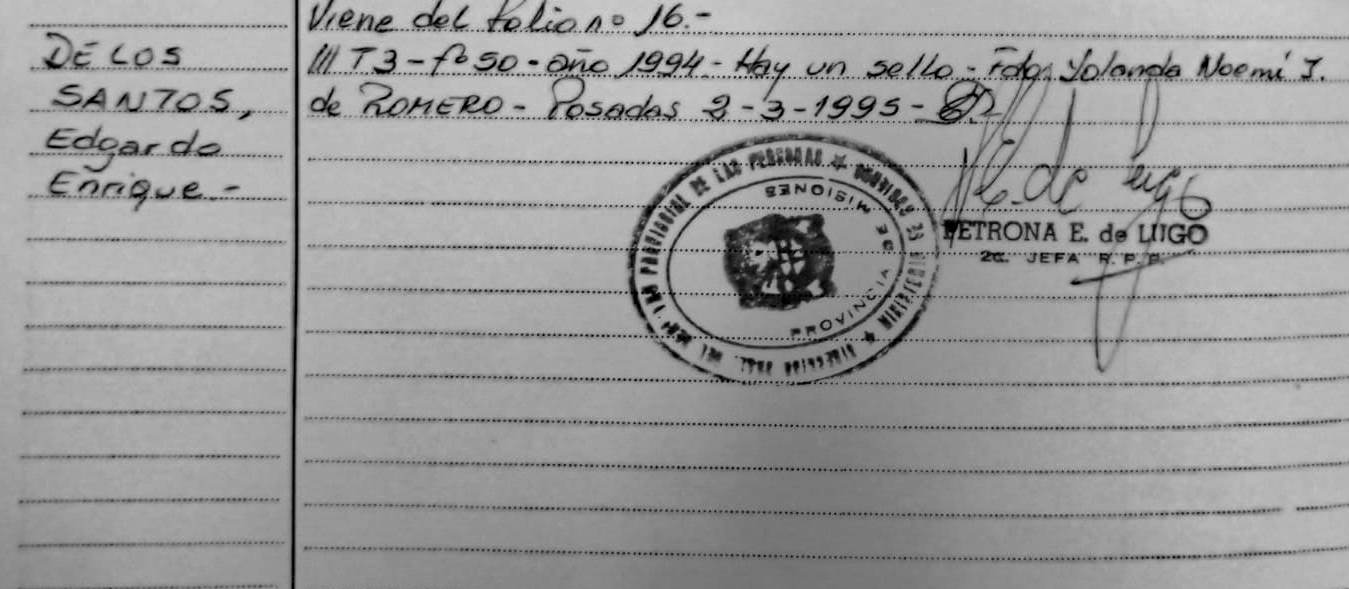 DE LOS
SANTOS,
Edgardo
Enrique.-
Viene del folio nº 16.-
/// T3 - fº 50 - año 1994 - Hay un sello - Fdo: Yolanda Noemí J.
de ROMERO - Posadas 2 - 3 - 1995 -
PROVINCIA DE MISIONES
DE LAS PERSONAS
E. de Lugo
PETRONA E. de LUGO
2a. JEFA R. P. P.